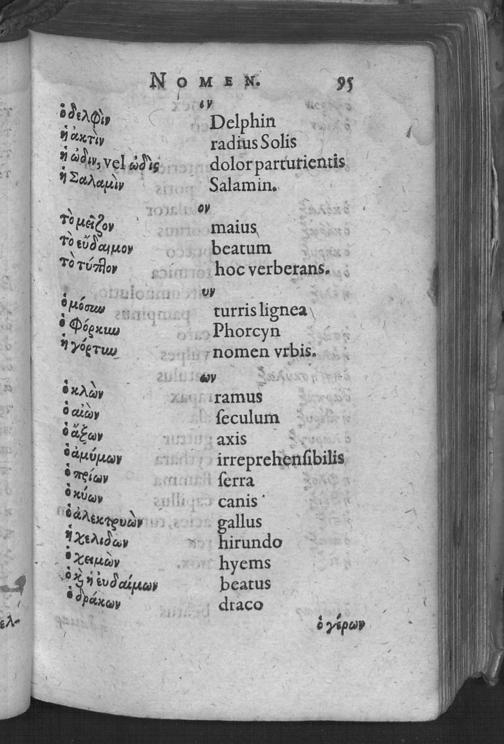 NOMEN. 95
ιν
ὁ δελφὶν Delphin
ἡ ἀκτὶν radius Solis
ἡ ὠδιν, vel ὠδὶς dolor parturientis
ἡ Σαλαμὶν Salamin.
ον
τὸ μεῖζον maius
τὸ εὔδαιμον beatum
τὸ τύπτον hoc verberans.
υν
ὁ μόσυν turris lignea
ὁ Φόρκυν Phorcyn
ἡ γόρτυν nomen vrbis.
ων
ὁ κλὼν ramus
ὁ αἰὼν ſeculum
ὁ ἄξων axis
ὁ ἀμύμων irreprehenſibilis
ὁ πρίων ſerra
ὁ κύων canis
ὁ ἀλεκτρυὼν gallus
ἡ χελιδὼν hirundo
ὁ χειμὼν hyems
ὁ κ̀ ἡ εὐδαίμων beatus
ὁ δράκων draco
ὁ γέρων